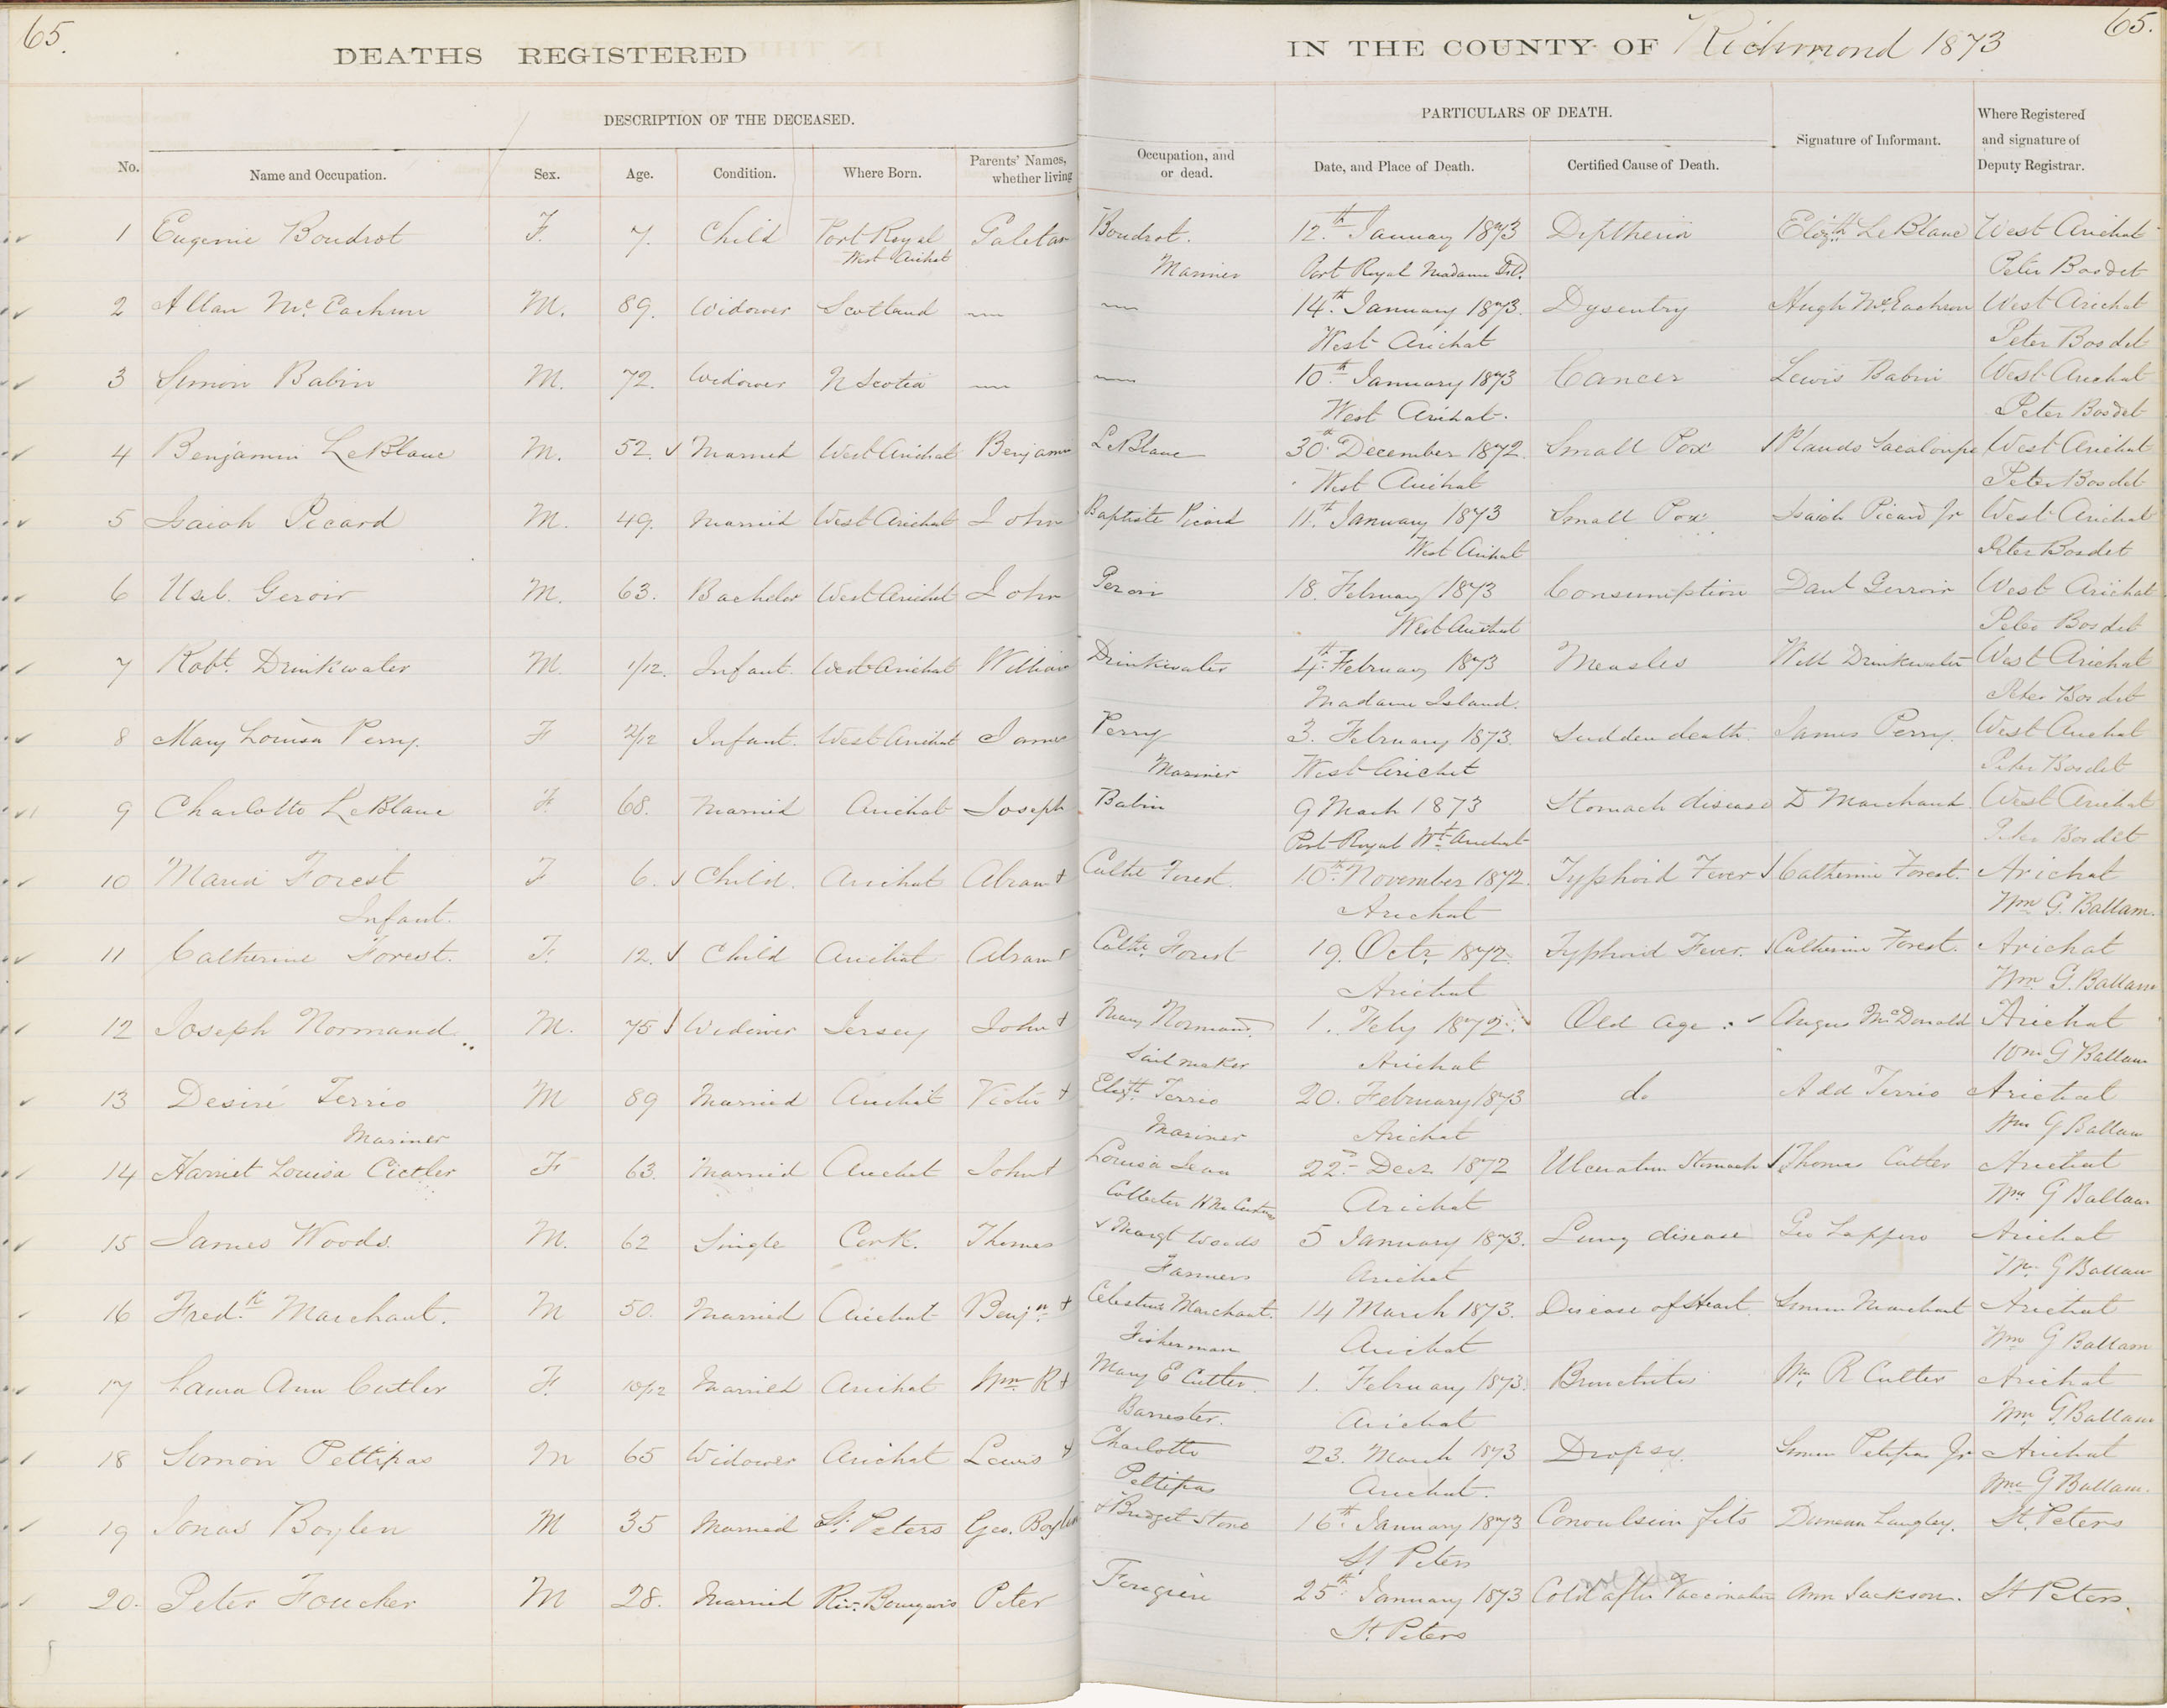 65.
65.
DEATHS REGISTERED IN THE COUNTY OF Richmond 1873
DESCRIPTION OF THE DECEASED.
PARTICULARS OF DEATH.
No. Name and Occupation. Sex. Age. Condition. Where Born. Parents' Names, Occupation, and whether living or dead. Date, and Place of Death. Certified Cause of Death. Signature of Informant. Where Registered and signature of Deputy Registrar.
1 Eugenie Boudrot F. 7. Child Port Royal Boudrot. 12.th January 1873 Diptheria Eliz.th LeBlanc West Arichat
West Arichat Mariner Port Royal Madame Isld. Peter Bosdet
2 Allan McEachern M. 89. Widower Scotland — — 14.th January 1873. Dysentry Hugh McEachern West Arichat
West Arichat Peter Bosdet
3 Simon Babin M. 72. Widower N Scotia — — 10.th January 1873 Cancer Lewis Babin West Arichat
West Arichat. Peter Bosdet
4 Benjamin LeBlanc M. 52. Married West Arichat Benjamin LeBlanc 30th December 1872. Small Pox West Arichat
West Arichat Peter Bosdet
5 Isaiah Picard M. 49. Married West Arichat John Baptiste Picard 11.th January 1873 Small Pox Isaiah Picard Jr West Arichat
West Arichat Peter Bosdet
6 Useb. Geroir M. 63. Bachelor West Arichat John Geroir 18. February 1873 Consumption Danl Gerroir West Arichat
West Arichat Peter Bosdet
7 Robt. Drinkwater M. 1/12. Infant. West Arichat William Drinkwater 4.th February 1873 Measles Will Drinkwater West Arichat
Madame Island. Peter Bosdet
8 Mary Louisa Perry. F 2/12 Infant. West Arichat James Perry 3. February 1873. Sudden death. James Perry. West Arichat
Mariner West Arichat Peter Bosdet
9 Charlotte LeBlanc F. 68. Married Arichat Joseph Babin 9 March 1873 Stomach disease D Marchand. West Arichat
Port Royal Wt. Arichat Peter Bosdet
10 Maria Forest F 6. Child. Arichat Abram + Cathe Forest. 10.th November 1872. Typhoid Fever Catherine Forest. Arichat
Infant. Arichat Wm G. Ballam.
11 Catherine Forest. F. 12. Child Arichat Abram + Cathe. Forest 19. Octr. 1872. Typhoid Fever. Catherine Forest. Arichat
Arichat Wm. G. Ballam
12 Joseph Normand M. 75 Widower Jersey John + Mary Normand. 1. Feby 1872. Old age. Angus McDonald Arichat
Sailmaker Arichat Wm G Ballam
13 Desiré Terrio M 89 Married Arichat Victor + Elizth. Terrio 20. February 1873 do Add Terrio Arichat
Mariner Mariner Arichat Wm G Ballam
14 Harriet Louisa Cutler F 63. Married Arichat John + Louisa Jean 22.d Decr. 1872 Ulceration Stomach Thomas Cutler Arichat
Collector Arichat Wm G Ballam
15 James Woods. M. 62 Single Cork. Thomas + Margt Woods 5 January 1873. Lung disease Arichat
Farmers Arichat Wm. G Ballam
16 Fred.k Marchant. M 50. Married Arichat Benjn. + Celestine Marchant. 14 March 1873. Disease of Heart. Simon Marchant Arichat
Fisherman Arichat Wm G Ballam
17 Laura Ann Cutler F. 10/12 Married Arichat Wm. R + Mary E Cutler. 1. February 1873. Bronchitis Wm R Cutler Arichat
Barrester. Arichat Wm G. Ballam
18 Simon Pettipas M 65 Widower Arichat Lewis + Charlotte 23. March 1873 Dropsy. Simon Petipas Jr Arichat
Pettipas Arichat. Wm G Ballam.
19 Jonas Boylen M 35 Married St. Peters Geo. Boylen + Bridget Stone 16.th January 1873 Convulsion fits Duncan Langley. St. Peters
St Peters
20. Peter Foucher M 28. Married Riv. Bourgeois Peter 25.th January 1873 Cold after Vaccination Ann Jackson. St Peters.
St. Peters